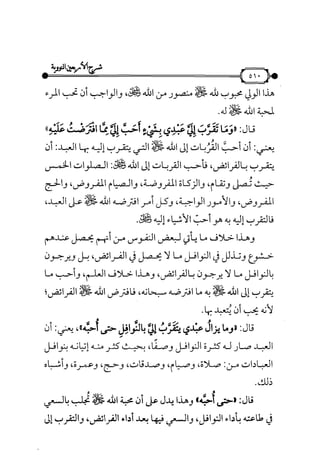 شرح الأربعين النووية
٥١٠
هذا الولي محبوب لله ﷻ منصور من الله ﷻ، والواجب أن تحب المرء
لمحبة الله ﷻ له.
قال: «وَمَا تَقَرَّبَ إِلَيَّ عَبْدِي بِشَيْءٍ أَحَبَّ إِلَيَّ مِمَّا افْتَرَضْتُ عَلَيْهِ»
يعني: أن أحبَّ القُرُبات إلى الله ﷻ التي يتقرب إليه بها العبد: أن
يتقرب بالفرائض، فأحب القربات إلى الله ﷻ: الصلوات الخمس
حيث تُصلى وتقام، والزكاة المفروضة، والصيام المفروض، والحج
المفروض، والأمور الواجبة، وكل أمر افترضه الله ﷻ على العبد،
فالتقرب إليه به هو أحبّ الأشياء إليه ﷻ.
وهذا خلاف ما يأتي لبعض النفوس من أنهم يحصل عندهم
خشوع وتذلل في النوافل ما لا يحصل في الفرائض، بل ويرجون
بالنوافل ما لا يرجون بالفرائض، وهذا خلاف العلم، وأحب ما
يتقرب إلى الله ﷻ به ما افترضه سبحانه، فافترض الله ﷻ الفرائض؛
لأنه يحب أن يُتعبد بها.
قال: «وما يزالُ عبْدي يتَقَرَّبُ إليَّ بالنَّوافِلِ حتى أُحبَّه»، يعني: أن
العبد صار له كثرة النوافل وصفًا، بحيث كثر منه إتيانه بنوافل
العبادات من: صلاة، وصيام، وصدقات، وحج، وعمرة، وأشباه
ذلك.
قال: «حتى أُحبَّه» وهذا يدل على أن محبة الله ﷻ تُجلب بالسعي
في طاعته بأداء النوافل، والسعي فيها بعد أداء الفرائض، والتقرب إلى